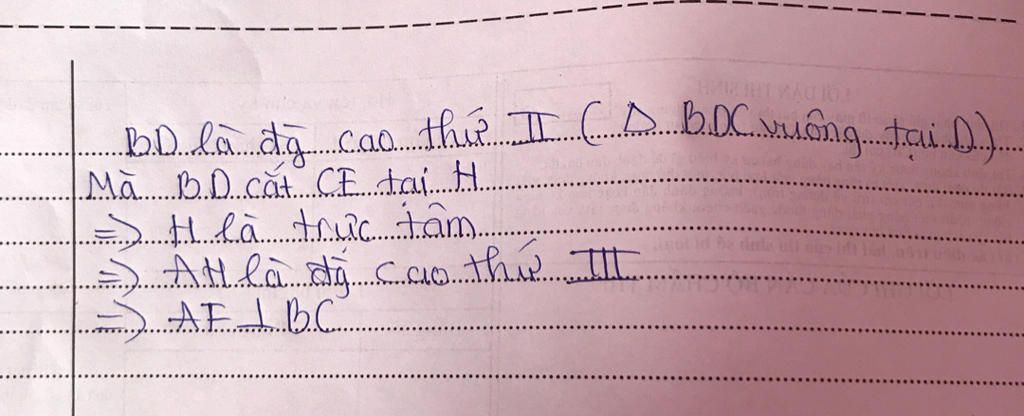 BD là đg̃ cao thứ II ( Δ BDC vuông tại D)
Mà BD cắt CE tại H
=> H là trực tâm
=> AH là đg̃ cao thứ III
=> AF ⊥ BC